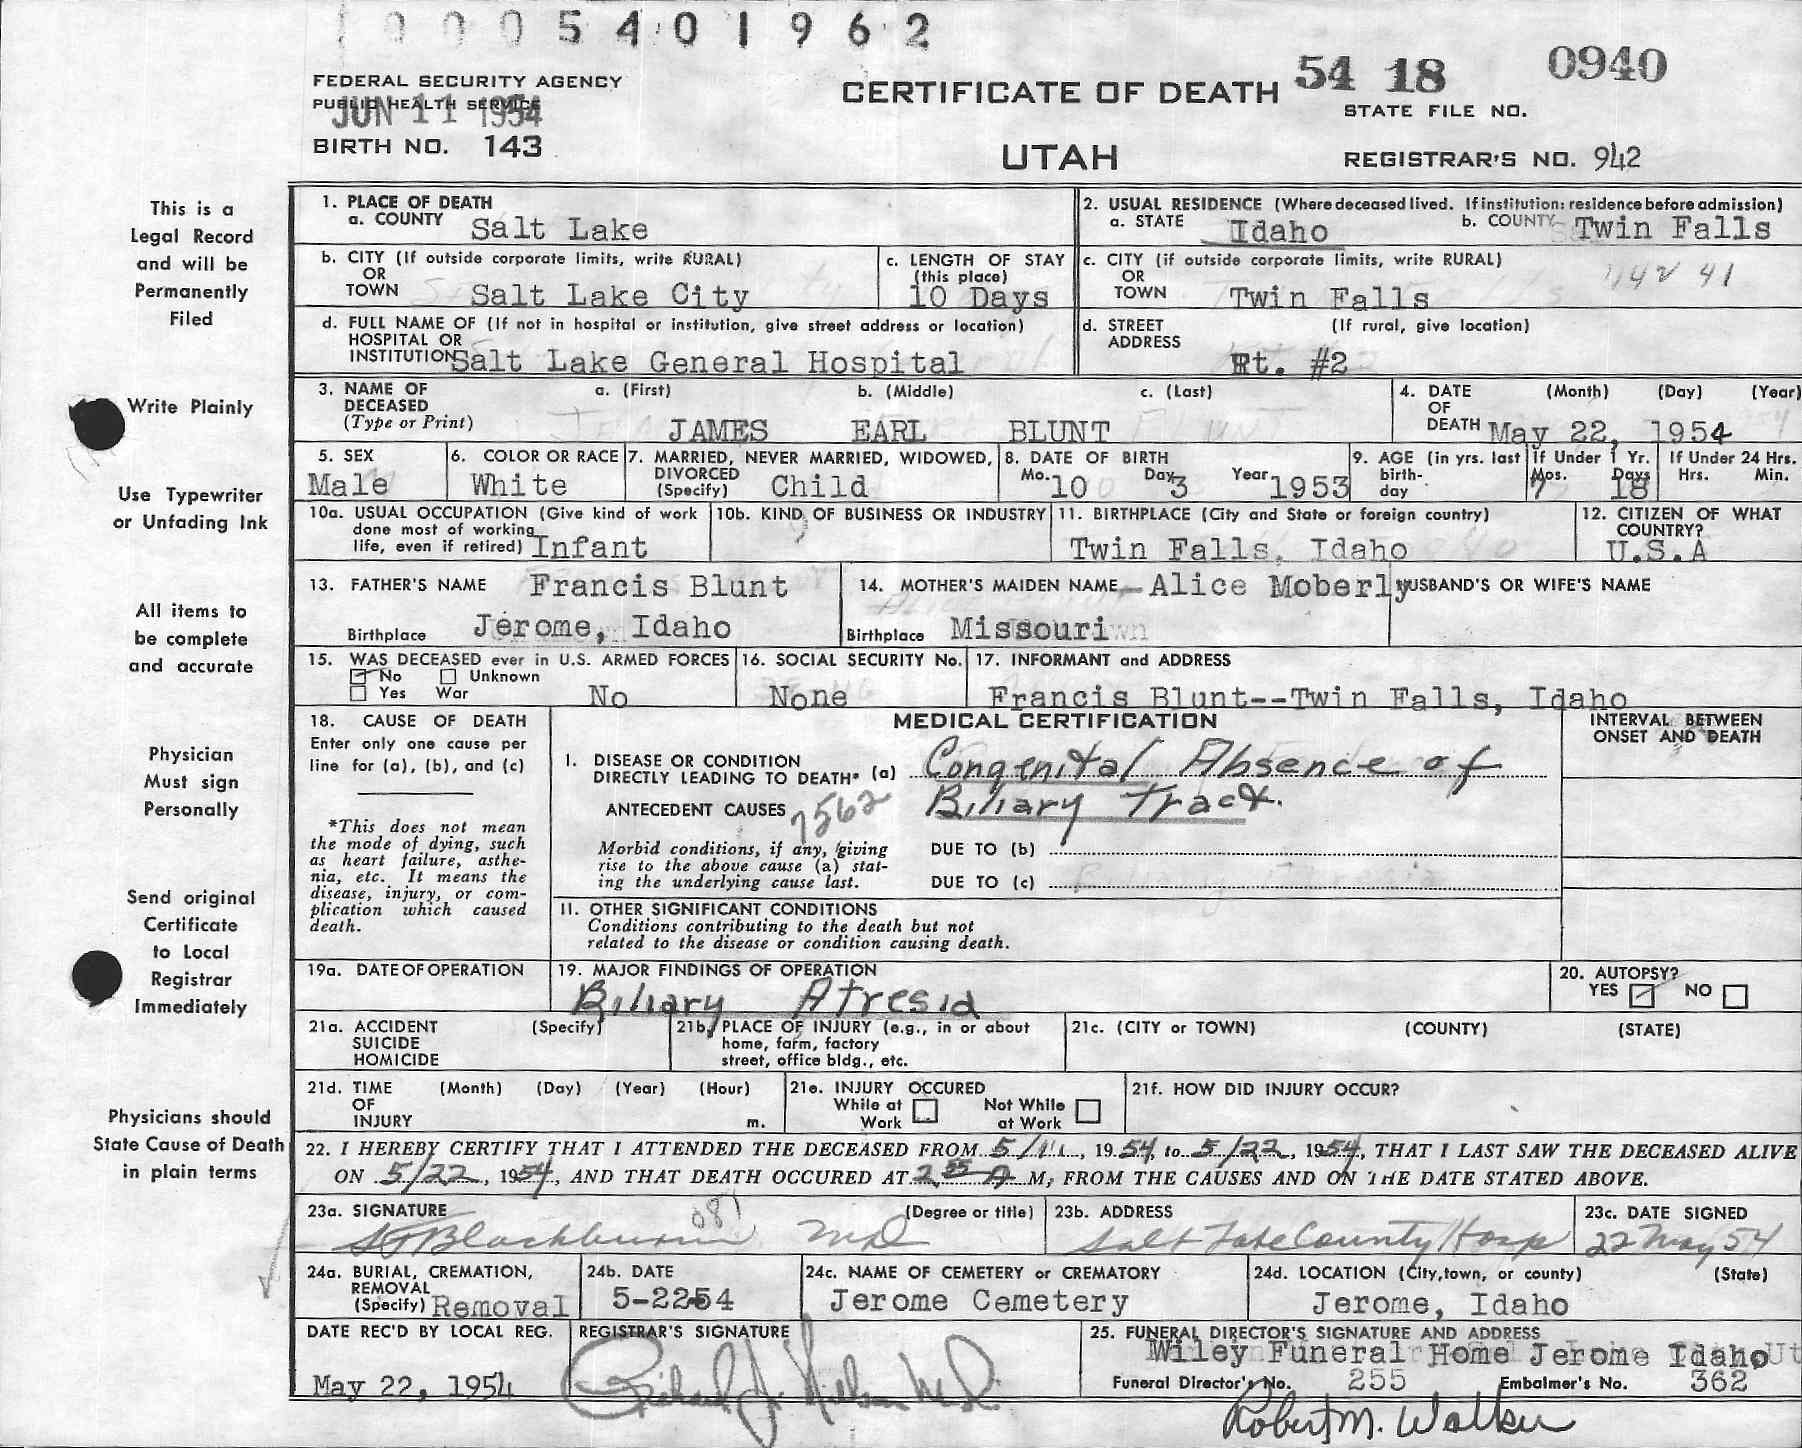 10005401962
FEDERAL SECURITY AGENCY
PUBLIC HEALTH SERVICE
JUN 11 1954
BIRTH NO. 143
CERTIFICATE OF DEATH
UTAH
54 18 0940
STATE FILE NO.
REGISTRAR'S NO. 942
This is a
Legal Record
and will be
Permanently
Filed
Write Plainly
Use Typewriter
or Unfading Ink
All items to
be complete
and accurate
Physician
Must sign
Personally
Send original
Certificate
to Local
Registrar
Immediately
Physicians should
State Cause of Death
in plain terms
1. PLACE OF DEATH
a. COUNTY Salt Lake
2. USUAL RESIDENCE (Where deceased lived. If institution: residence before admission)
a. STATE Idaho b. COUNTY Twin Falls
b. CITY (If outside corporate limits, write RURAL)
OR
TOWN Salt Lake City
c. LENGTH OF STAY
(this place)
10 Days
c. CITY (if outside corporate limits, write RURAL)
OR
TOWN Twin Falls
d. FULL NAME OF (If not in hospital or institution, give street address or location)
HOSPITAL OR
INSTITUTION Salt Lake General Hospital
d. STREET (If rural, give location)
ADDRESS
Rt. #2
3. NAME OF a. (First) b. (Middle) c. (Last)
DECEASED
(Type or Print) JAMES EARL BLUNT
4. DATE (Month) (Day) (Year)
OF
DEATH May 22, 1954
5. SEX
Male
6. COLOR OR RACE
White
7. MARRIED, NEVER MARRIED, WIDOWED,
DIVORCED
(Specify) Child
8. DATE OF BIRTH
Mo. 10 Day 3 Year 1953
9. AGE (in yrs. last
birth-
day
If Under 1 Yr.
Mos. 7 Days 18
If Under 24 Hrs.
Hrs. Min.
10a. USUAL OCCUPATION (Give kind of work
done most of working
life, even if retired) Infant
10b. KIND OF BUSINESS OR INDUSTRY
11. BIRTHPLACE (City and State or foreign country)
Twin Falls, Idaho
12. CITIZEN OF WHAT
COUNTRY?
U.S.A
13. FATHER'S NAME Francis Blunt
Birthplace Jerome, Idaho
14. MOTHER'S MAIDEN NAME Alice Moberly
Birthplace Missouri
HUSBAND'S OR WIFE'S NAME
15. WAS DECEASED ever in U.S. ARMED FORCES
No Unknown
Yes War No
16. SOCIAL SECURITY No.
None
17. INFORMANT and ADDRESS
Francis Blunt--Twin Falls, Idaho
18. CAUSE OF DEATH
Enter only one cause per
line for (a), (b), and (c)
*This does not mean
the mode of dying, such
as heart failure, asthe-
nia, etc. It means the
disease, injury, or com-
plication which caused
death.
MEDICAL CERTIFICATION
INTERVAL BETWEEN
ONSET AND DEATH
I. DISEASE OR CONDITION
DIRECTLY LEADING TO DEATH* (a) Congenital Absence of
Biliary Tract.
ANTECEDENT CAUSES 7562
Morbid conditions, if any, giving
rise to the above cause (a) stat-
ing the underlying cause last.
DUE TO (b)
DUE TO (c)
II. OTHER SIGNIFICANT CONDITIONS
Conditions contributing to the death but not
related to the disease or condition causing death.
19a. DATE OF OPERATION
19. MAJOR FINDINGS OF OPERATION
Biliary Atresia
20. AUTOPSY?
YES NO
21a. ACCIDENT (Specify)
SUICIDE
HOMICIDE
21b. PLACE OF INJURY (e.g., in or about
home, farm, factory
street, office bldg., etc.
21c. (CITY or TOWN) (COUNTY) (STATE)
21d. TIME (Month) (Day) (Year) (Hour)
OF
INJURY m.
21e. INJURY OCCURED
While at Not While
Work at Work
21f. HOW DID INJURY OCCUR?
22. I HEREBY CERTIFY THAT I ATTENDED THE DECEASED FROM 5/11, 1954, to 5/22, 1954, THAT I LAST SAW THE DECEASED ALIVE
ON 5/22, 1954, AND THAT DEATH OCCURED AT 2 55 A M, FROM THE CAUSES AND ON THE DATE STATED ABOVE.
23a. SIGNATURE (Degree or title)
Blackburn MD
081
23b. ADDRESS
Salt Lake County Hosp
23c. DATE SIGNED
22 May 54
24a. BURIAL, CREMATION,
REMOVAL
(Specify) Removal
24b. DATE
5-22-54
24c. NAME OF CEMETERY or CREMATORY
Jerome Cemetery
24d. LOCATION (City, town, or county) (State)
Jerome, Idaho
DATE REC'D BY LOCAL REG.
May 22, 1954
REGISTRAR'S SIGNATURE
Richard J. Nielsen M.D.
25. FUNERAL DIRECTOR'S SIGNATURE AND ADDRESS
Wiley Funeral Home Jerome Idaho
Funeral Director's No. 255 Embalmer's No. 362
Robert M. Walker